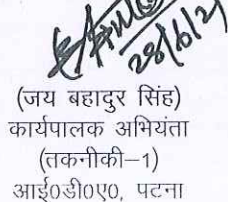 28/6/21
(जय बहादुर सिंह)
कार्यपालक अभियंता
(तकनीकी–1)
आई0डी0ए0, पटना